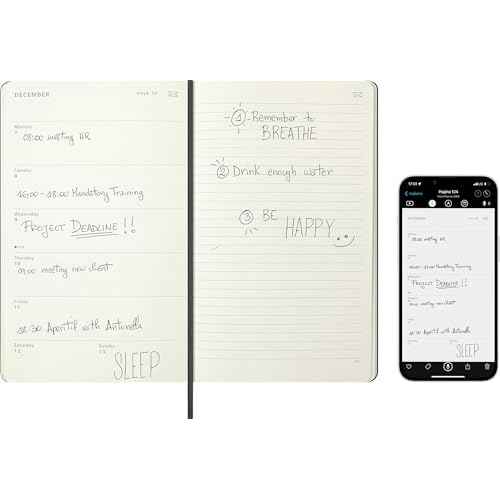 DECEMBER
Monday
08:00 meeting HR
Tuesday
16:00 - 18:00 Mandatory Training
Wednesday
PROJECT DEADLINE !!
Thursday
09:00 meeting new client
Friday
18:30 Aperitif with Antonella
Saturday
Sunday
SLEEP
1 Remember to
BREATHE
2 Drink enough water
3 BE
HAPPY
DECEMBER
08:00 meeting HR
16:00 - 18:00 Mandatory Training
PROJECT DEADLINE !!
09:00 meeting new client
18:30 Aperitif with Antonella
SLEEP